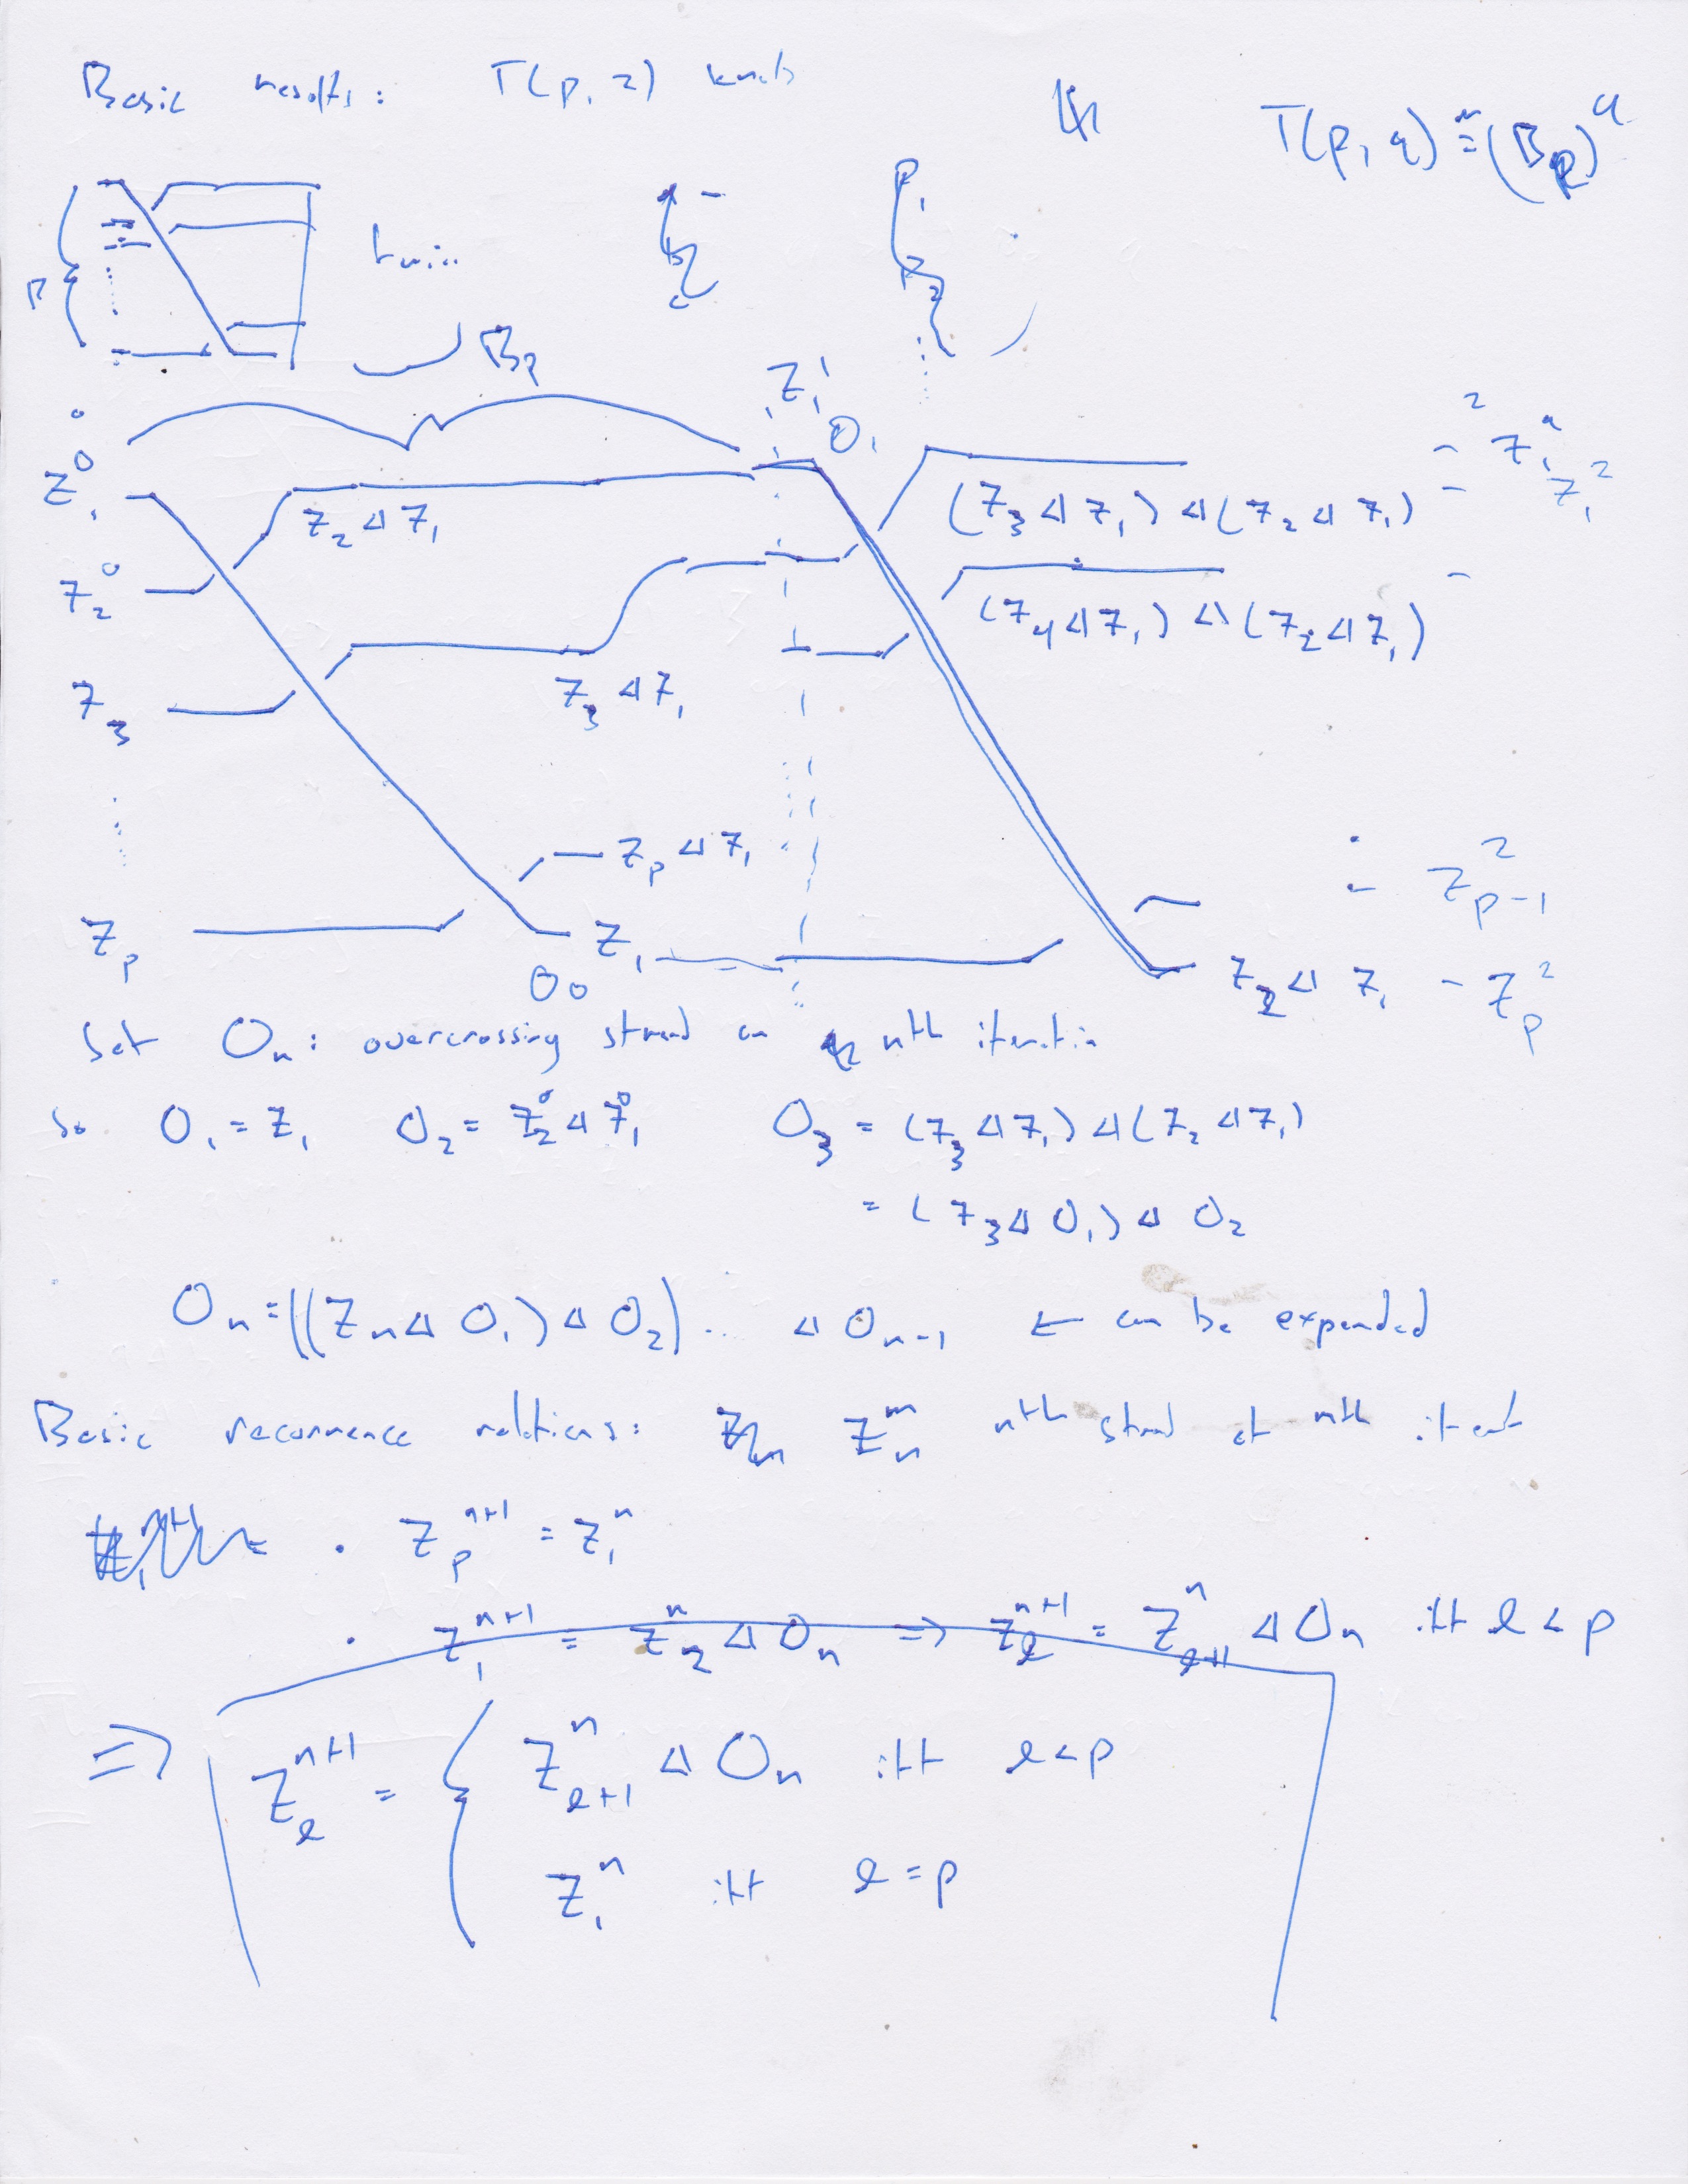 Basic results: T(p, 2) knots
T(p, q) ≅ (B_p)^q
p
B_p
Z_1^1
O_1
Z_1^0
Z_2 ◁ Z_1
(Z_3 ◁ Z_1) ◁ (Z_2 ◁ Z_1) - Z_1^2
Z_2^0
(Z_4 ◁ Z_1) ◁ (Z_2 ◁ Z_1) -
Z_3
Z_3 ◁ Z_1
Z_p ◁ Z_1
Z_{p-1}^2
Z_p
Z_1
O_0
Z_2 ◁ Z_1 - Z_p^2
Set O_n: overcrossing strand on nth iteration
So O_1 = Z_1 O_2 = Z_2^0 ◁ Z_1^0 O_3 = (Z_3 ◁ Z_1) ◁ (Z_2 ◁ Z_1)
= (Z_3 ◁ O_1) ◁ O_2
O_n = ((Z_n ◁ O_1) ◁ O_2) ... ◁ O_{n-1} ← can be expanded
Basic recurrence relations: Z_n^m nth strand at mth iterat
· Z_p^{n+1} = Z_1^n
· Z_1^{n+1} = Z_2^n ◁ O_n ⇒ Z_l^{n+1} = Z_{l+1}^n ◁ O_n iff l < p
⇒ Z_l^{n+1} = { Z_{l+1}^n ◁ O_n iff l < p
Z_1^n iff l = p